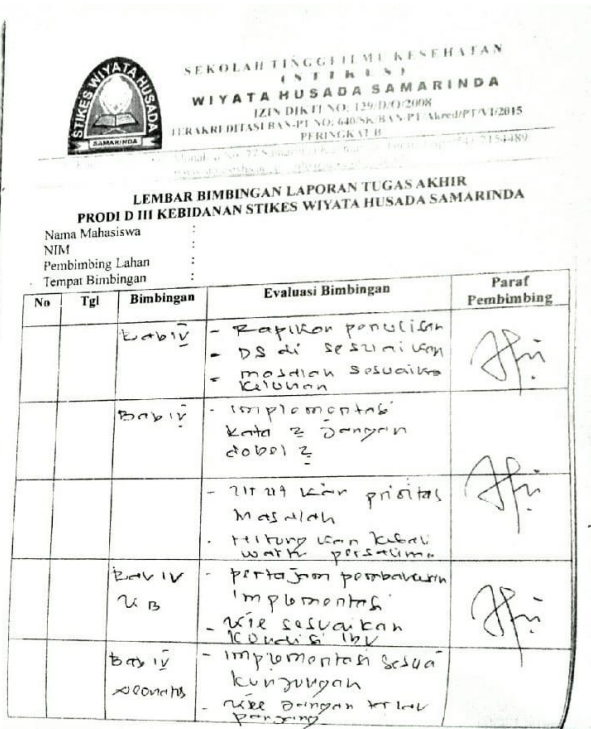 SEKOLAH TINGGI ILMU KESEHATAN
( S T I K E S )
WIYATA HUSADA SAMARINDA
IZIN DIKTI NO: 129/D/O/2008
TERAKREDITASI BAN-PT NO: 640/SK/BAN-PT/Akred/PT/VI/2015
PERINGKAT B
STIKES WIYATA HUSADA
SAMARINDA
LEMBAR BIMBINGAN LAPORAN TUGAS AKHIR
PRODI D III KEBIDANAN STIKES WIYATA HUSADA SAMARINDA
Nama Mahasiswa :
NIM :
Pembimbing Lahan :
Tempat Bimbingan :
No Tgl Bimbingan Evaluasi Bimbingan Paraf Pembimbing
Bab IV - Rapikan penulisan
- DS di sesuaikan
- masalah sesuaikan
keluhan
Bab IV - implementasi
kata 2 jangan
dobel 2
- urutkan prioritas
masalah
- Hitung kan kebali
waktu persalinan
Bab IV - pertajam pembahasan
KB implementasi
- KIE sesuaikan
kondisi ibu
Bab IV - implementasi sesuai
neonatus kunjungan
- KIE jangan terlalu
panjang